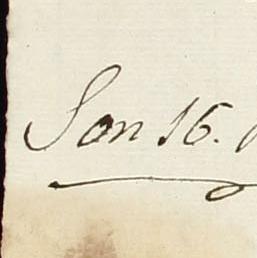 Son 16.